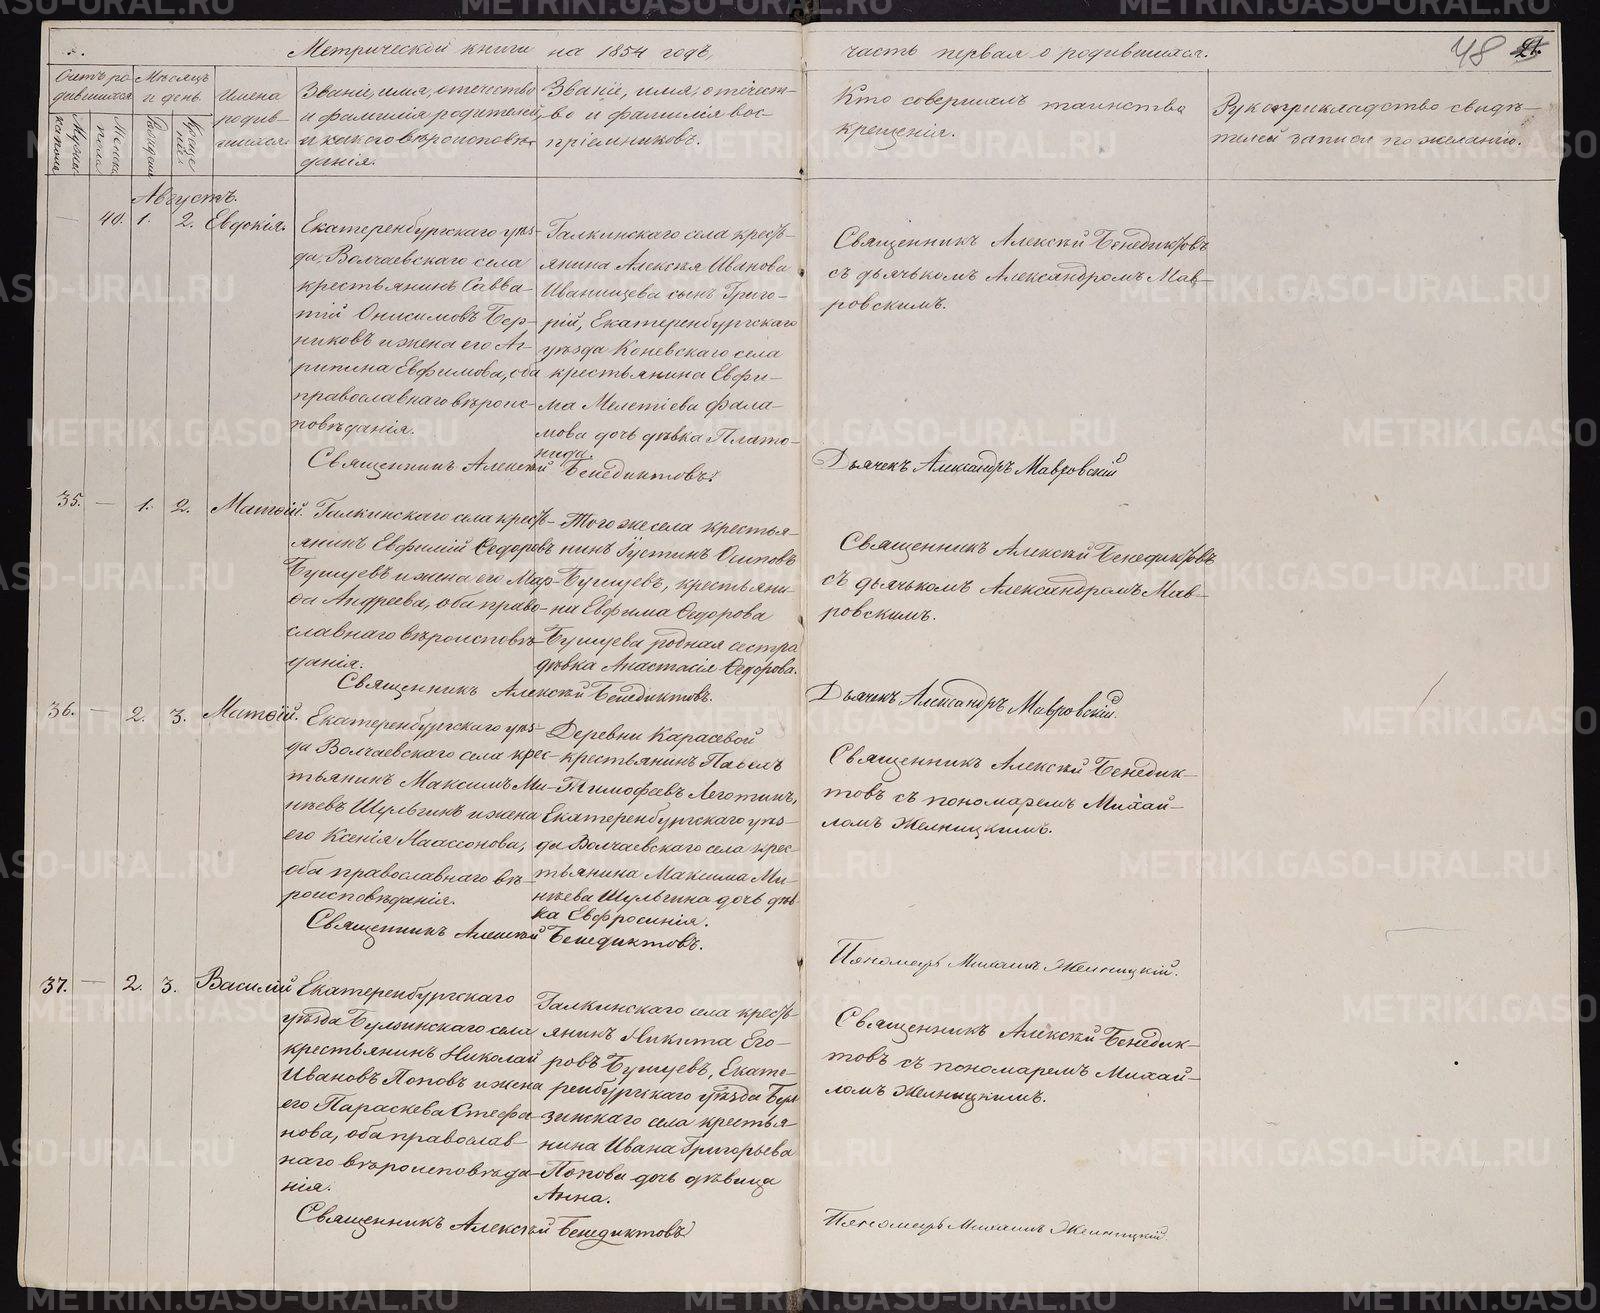 Метрической книги на 1854 годъ,
часть первая о родившихся.
48
Счетъ ро-
дившихся
Мѣсяцъ
и день.
Имена
родив-
шихся.
Званіе, имя, отечество
и фамилія родителей,
и какого вѣроисповѣ-
данія.
Званіе, имя, отечест-
во и фамилія вос-
пріемниковъ.
Кто совершалъ таинство
крещенія.
Рукоприкладство свидѣ-
телей записи по желанію.
Августъ.
40. 1. 2. Евдокія.
Екатеренбургскаго уѣз-
да Волчаевскаго села
крестьянинъ Савва-
тій Онисимовъ Бер-
никовъ и жена его Аг-
рипина Евфимова, оба
православнаго вѣроис-
повѣданія.
Галкинскаго села кресть-
янина Алексѣя Иванова
Иванищева сынъ Григо-
рій, Екатеренбургскаго
уѣзда Коневскаго села
крестьянина Евфи-
ма Мелетіева Фала-
мова дочь дѣвка Плато-
нида.
Священникъ Алексѣй Бенедиктовъ
съ дьячькомъ Александромъ Мав-
ровскимъ.
Священникъ Алексѣй Бенедиктовъ.
Дьячекъ Александръ Мавровскій
35. — 1. 2. Матѳій.
Галкинскаго села кресть-
янинъ Евфимій Ѳедоровъ
Бушуевъ и жена его Мар-
ѳа Андреева, оба право-
славнаго вѣроисповѣ-
данія.
Того же села крестья-
нинъ Іустинъ Осиповъ
Бушуевъ, крестьяни-
на Евфима Ѳедорова
Бушуева родная сестра
дѣвка Анастасія Ѳедорова.
Священникъ Алексѣй Бенедиктовъ
съ дьячькомъ Александромъ Мав-
ровскимъ.
Священникъ Алексѣй Бенедиктовъ.
Дьячекъ Александръ Мавровскій.
36. — 2. 3. Матѳій.
Екатеренбургскаго уѣз-
да Волчаевскаго села крес-
тьянинъ Максимъ Ми-
нѣевъ Шульгинъ и жена
его Ксенія Маассонова,
оба православнаго вѣ-
роисповѣданія.
Деревни Карасевой
крестьянинъ Павелъ
Тимофеевъ Леготинъ,
Екатеренбургскаго уѣз-
да Волчаевскаго села крес-
тьянина Максима Ми-
нѣева Шульгина дочь дѣв-
ка Евфросинія.
Священникъ Алексѣй Бенедик-
товъ съ пономаремъ Михаи-
ломъ Желницкимъ.
Священникъ Алексѣй Бенедиктовъ.
Пономарь Михаилъ Желницкій.
37. — 2. 3. Василій
Екатеренбургскаго
уѣзда Булзинскаго села
крестьянинъ Николай
Ивановъ Поповъ и жена
его Параскева Стефа-
нова, оба православ-
наго вѣроисповѣда-
нія.
Галкинскаго села кресть-
янинъ Никита Его-
ровъ Бушуевъ, Екате-
ренбургскаго уѣзда Бул-
зинскаго села крестья-
нина Ивана Григорьева
Попова дочь дѣвица
Анна.
Священникъ Алексѣй Бенедик-
товъ съ пономаремъ Михаи-
ломъ Желницкимъ.
Священникъ Алексѣй Бенедиктовъ
Пономарь Михаилъ Желницкій.
METRIKI.GASO-URAL.RU